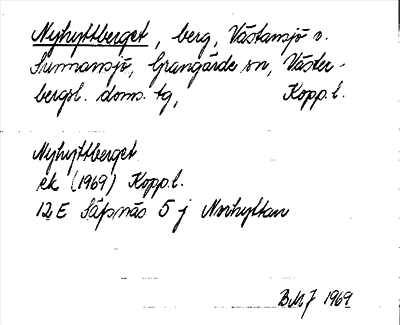 Nyhyttberget, berg, Västansjö o.
Sunnansjö, Grangärde sn, Väster-
bergsl. doms. tg, Kopp.l.
Nyhyttberget
ek (1969) Kopp.l.
12 E Säfsnäs 5 j Norhyttan
BMJ 1969